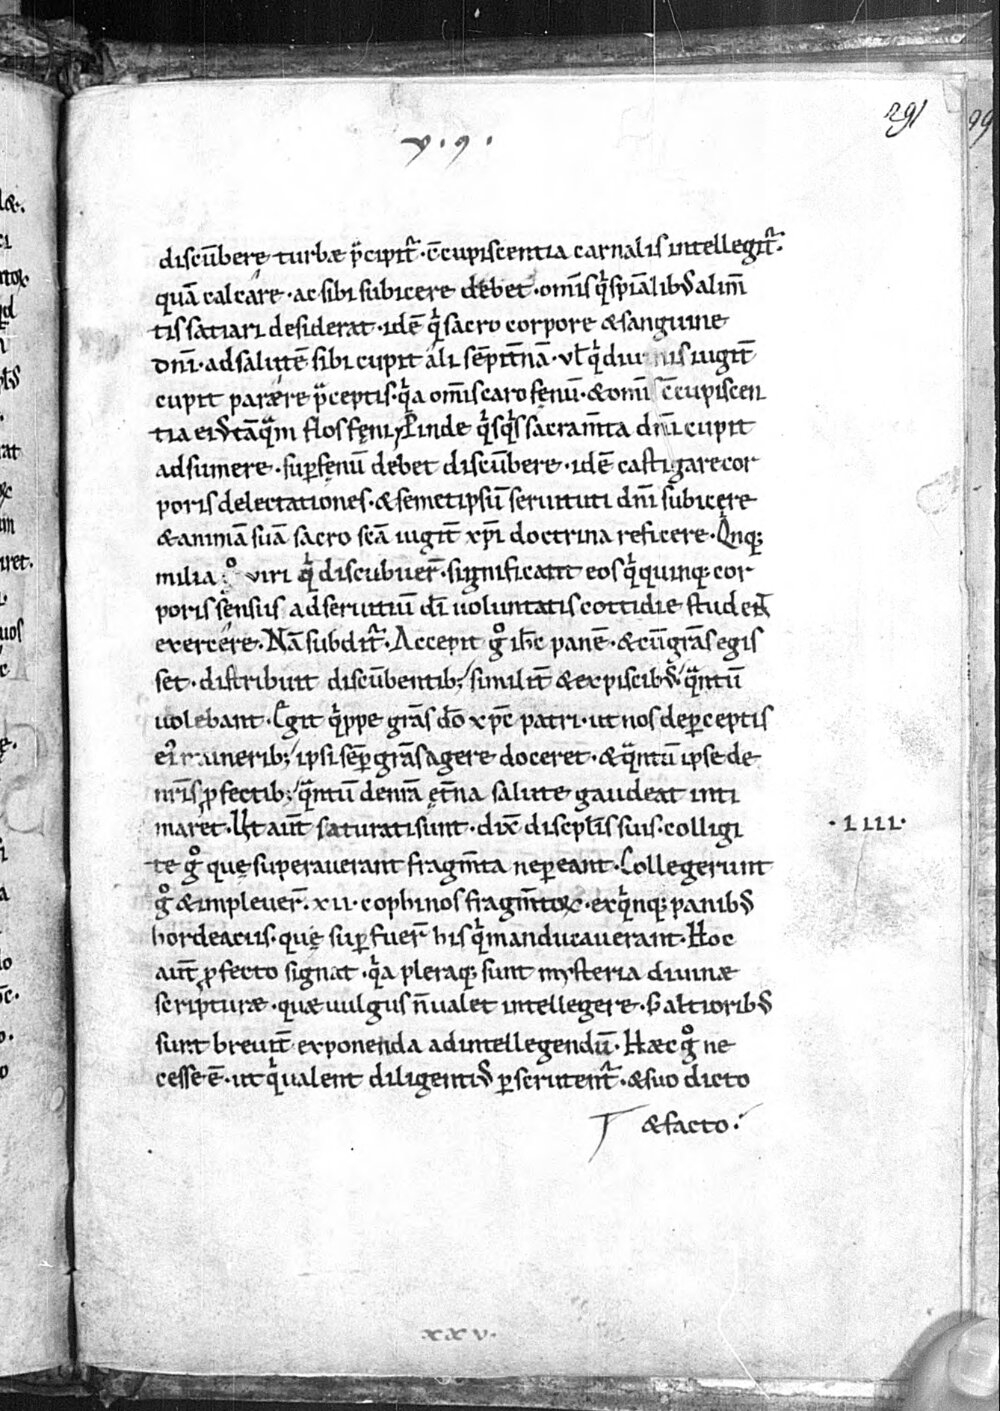 291
99
.v.9.
discūbere turbæ p̄cipit᷑ · c̄cupiscentia carnalis intellegit᷑.
quā calcare · ac sibi subicere debet · om̄is q̇ spiāli b᷒ alim̄
tis satiari desiderat · idē q̇ sacro corpore & sanguine
dn̄i · ad salutē sibi cupit ali sēpit̄nā · vl̄ q̇ diuinis iugit̄
cupit parære p̄ceptis · q̇a om̄is caro fenū · & om̄i c̄cupiscen
tia ei᷒ tāq̄m flos fęni; Proinde q̇sq̇s sacram̄ta dn̄i cupit
adsumere · sup̱ fęnū debet discūbere · idē castigare cor
poris delectationes · & semetipsū seruituti dn̄i subicere
& animā suā sacro scā iugit̄ xp̄i doctrina reficere · Q̇nq;
milia g̊ viri q̇ discubuer̄ · significant eos q̇ quinq; cor
poris sensus ad seruitiū dī uoluntatis cottidie studeN̄
exercere · Nā subdit᷑ · Accepit g̊ ih̄c panē · & cū grās egis
set · distribuit discūbentib; similit̄ & ex piscib᷒ q̄ntū
uolebant · Egit q̇ppe grās dō xp̄c patri · ut nos de p̱ceptis
ei᷒ muneribus; ipsi sēp̱ grās agere doceret · & q̄ntū ipse de
nr̄is p̱fectib; q̄ntū de nr̄a ęt̄na salute gaudeat inti
maret · Ut aūt saturati sunt · dix̄ discpl̄is suis · colligi
.liii.
te g̊ quę superauerant fragm̄ta ne p̱eant · Collegerunt
g̊ & impleuer̄ · xii · cophinos fragm̄toꝝ · ex q̇nq; panib᷒
hordeaciis · quę sup̱fuer̄ his q̇ manducauerant · Hoc
aūt p̱fecto signat · q̇a pleraq; sunt mysteria diuinæ
scripturæ · quæ uulgus n̄ ualet intellegere · S; altiorib᷒
sunt breuit̄ exponenda ad intellegendū · Hæc g̊ ne
cesse ē · ut q̇ ualent diligenti᷒ p̱scrutent᷑ · & suo dicto
& facto.
xxv.